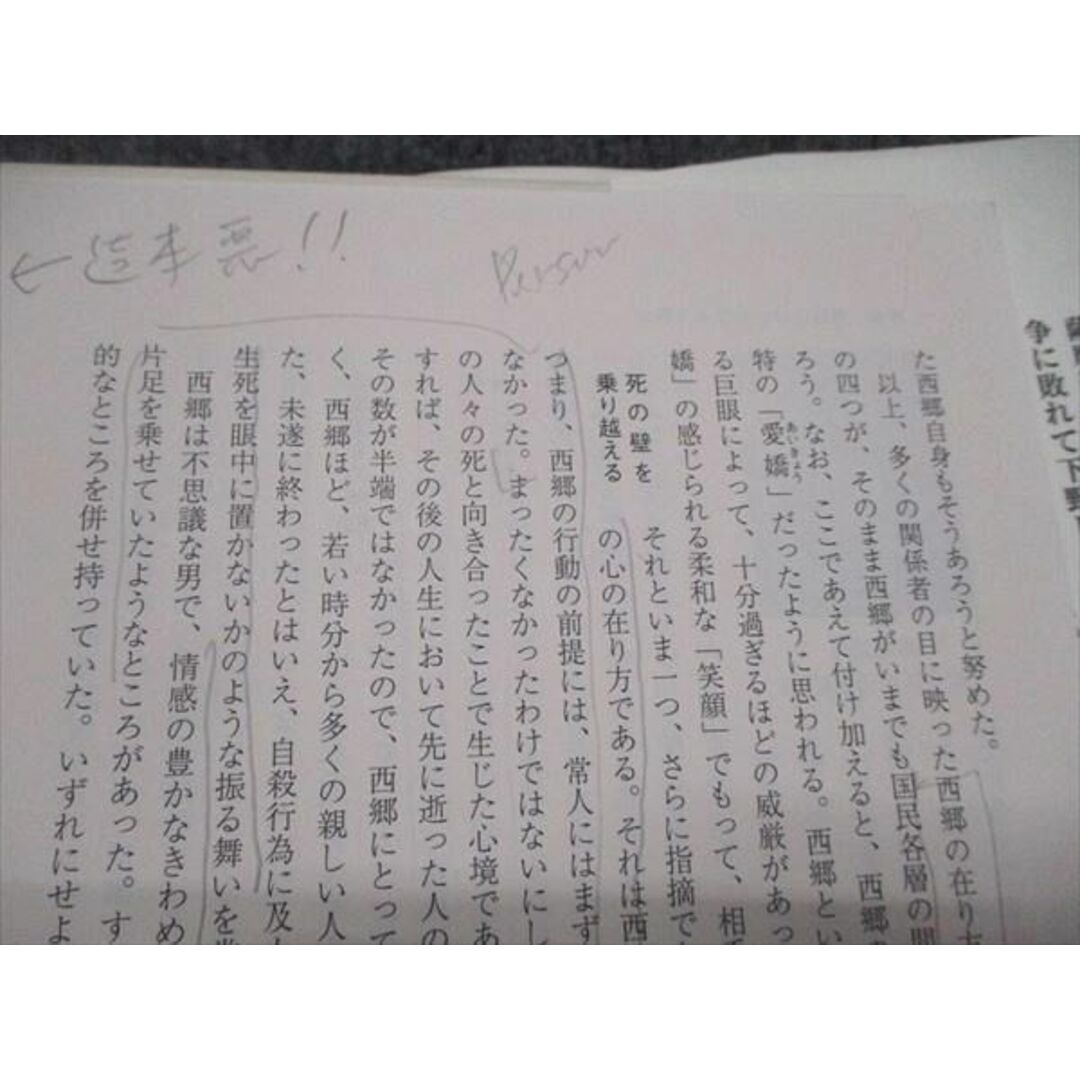 ←造本悪!!
Person
争に敗れて下野
た西郷自身もそうあろうと努めた。
以上、多くの関係者の目に映った西郷の在り方
の四つが、そのまま西郷がいまでも国民各層の間
ろう。なお、ここであえて付け加えると、西郷
特の「愛嬌」だったように思われる。西郷とい
あいきょう
る巨眼によって、十分過ぎるほどの威厳があっ
嬌」の感じられる柔和な「笑顔」でもって、相手
死の壁を
乗り越える
それといま一つ、さらに指摘で
の心の在り方である。それは西
つまり、西郷の行動の前提には、常人にはまず
なかった。まったくなかったわけではないにし
の人々の死と向き合ったことで生じた心境であ
すれば、その後の人生において先に逝った人の
その数が半端ではなかったので、西郷にとって
く、西郷ほど、若い時分から多くの親しい人
た、未遂に終わったとはいえ、自殺行為に及
生死を眼中に置かないかのような振る舞いを
西郷は不思議な男で、情感の豊かなきわめ
片足を乗せていたようなところがあった。す
的なところを併せ持っていた。いずれにせよ